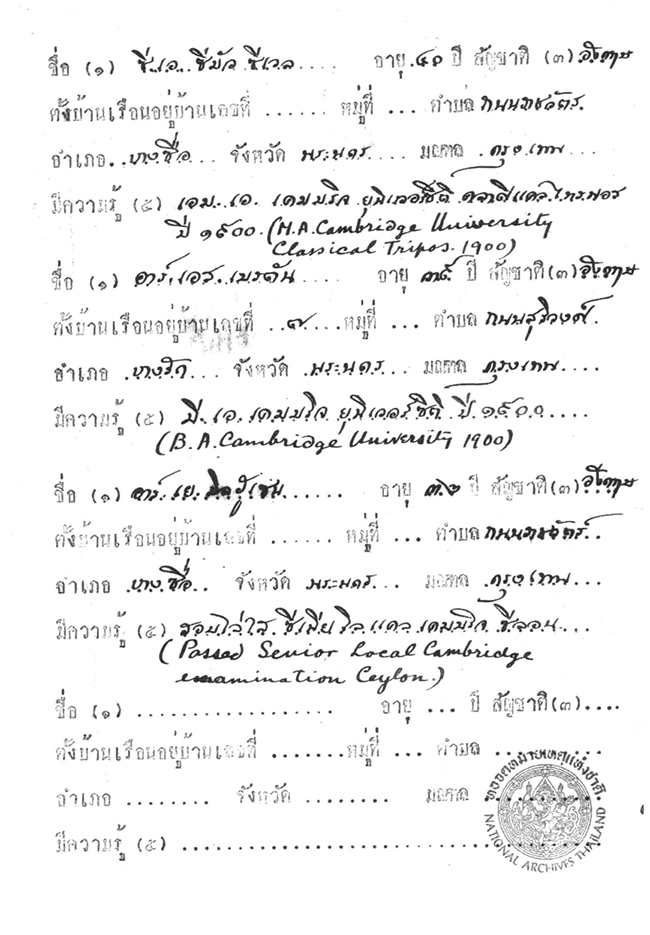 ชื่อ (๑) ซี.เอ. ซีมัว ซีเวล .... อายุ ๔๐ ปี สัญชาติ (๓) อังกฤษ
ตั้งบ้านเรือนอยู่บ้านเลขที่ ...... หมู่ที่ ... ตำบล ถนนราชวัตร.
อำเภอ..บางซื่อ... จังหวัด พระนคร.. มณฑล .กรุงเทพ...
มีความรู้ (๕) เอม. เอ. เคมบริจ ยูนิเวอซิตี คลาสิแคลไทรพอซ
ปี ๑๙๐๐. (M.A. Cambridge University
Classical Tripos. 1900)
ชื่อ (๑) อาร์.เอส. เบรตัน ... อายุ ๓๕ ปี สัญชาติ(๓) อังกฤษ
ตั้งบ้านเรือนอยู่บ้านเลขที่ ..๗....หมู่ที่ ... ตำบล ถนนสุริวงศ์.
อำเภอ .บางรัก... จังหวัด .พระนคร... มณฑล .กรุงเทพ....
มีความรู้ (๕) บี. เอ. เคมบริจ ยูนิเวอร์ซิตี ปี ๑๙๐๐....
(B.A. Cambridge University 1900)
ชื่อ (๑) อาร์. เย. ...... อายุ ๓๖ ปี สัญชาติ(๓) อังกฤษ
ตั้งบ้านเรือนอยู่บ้านเลขที่ ...... หมู่ที่ ... ตำบล ถนนราชวัตร์..
อำเภอ .บางซื่อ.. จังหวัด พระนคร... มณฑล .กรุงเทพ...
มีความรู้ (๕) สอบไล่ได้ ซีเนีย โลแคล เคมบริจ ซีลอน...
(Passed Senior Local Cambridge
examination Ceylon.)
ชื่อ (๑) .................. อายุ ... ปี สัญชาติ(๓)....
ตั้งบ้านเรือนอยู่บ้านเลขที่ .......หมู่ที่ ... ตำบล ..........
อำเภอ ........ จังหวัด ........ มณฑล ..........
มีความรู้ (๕) ......................................
หอจดหมายเหตุแห่งชาติ
NATIONAL ARCHIVES THAILAND